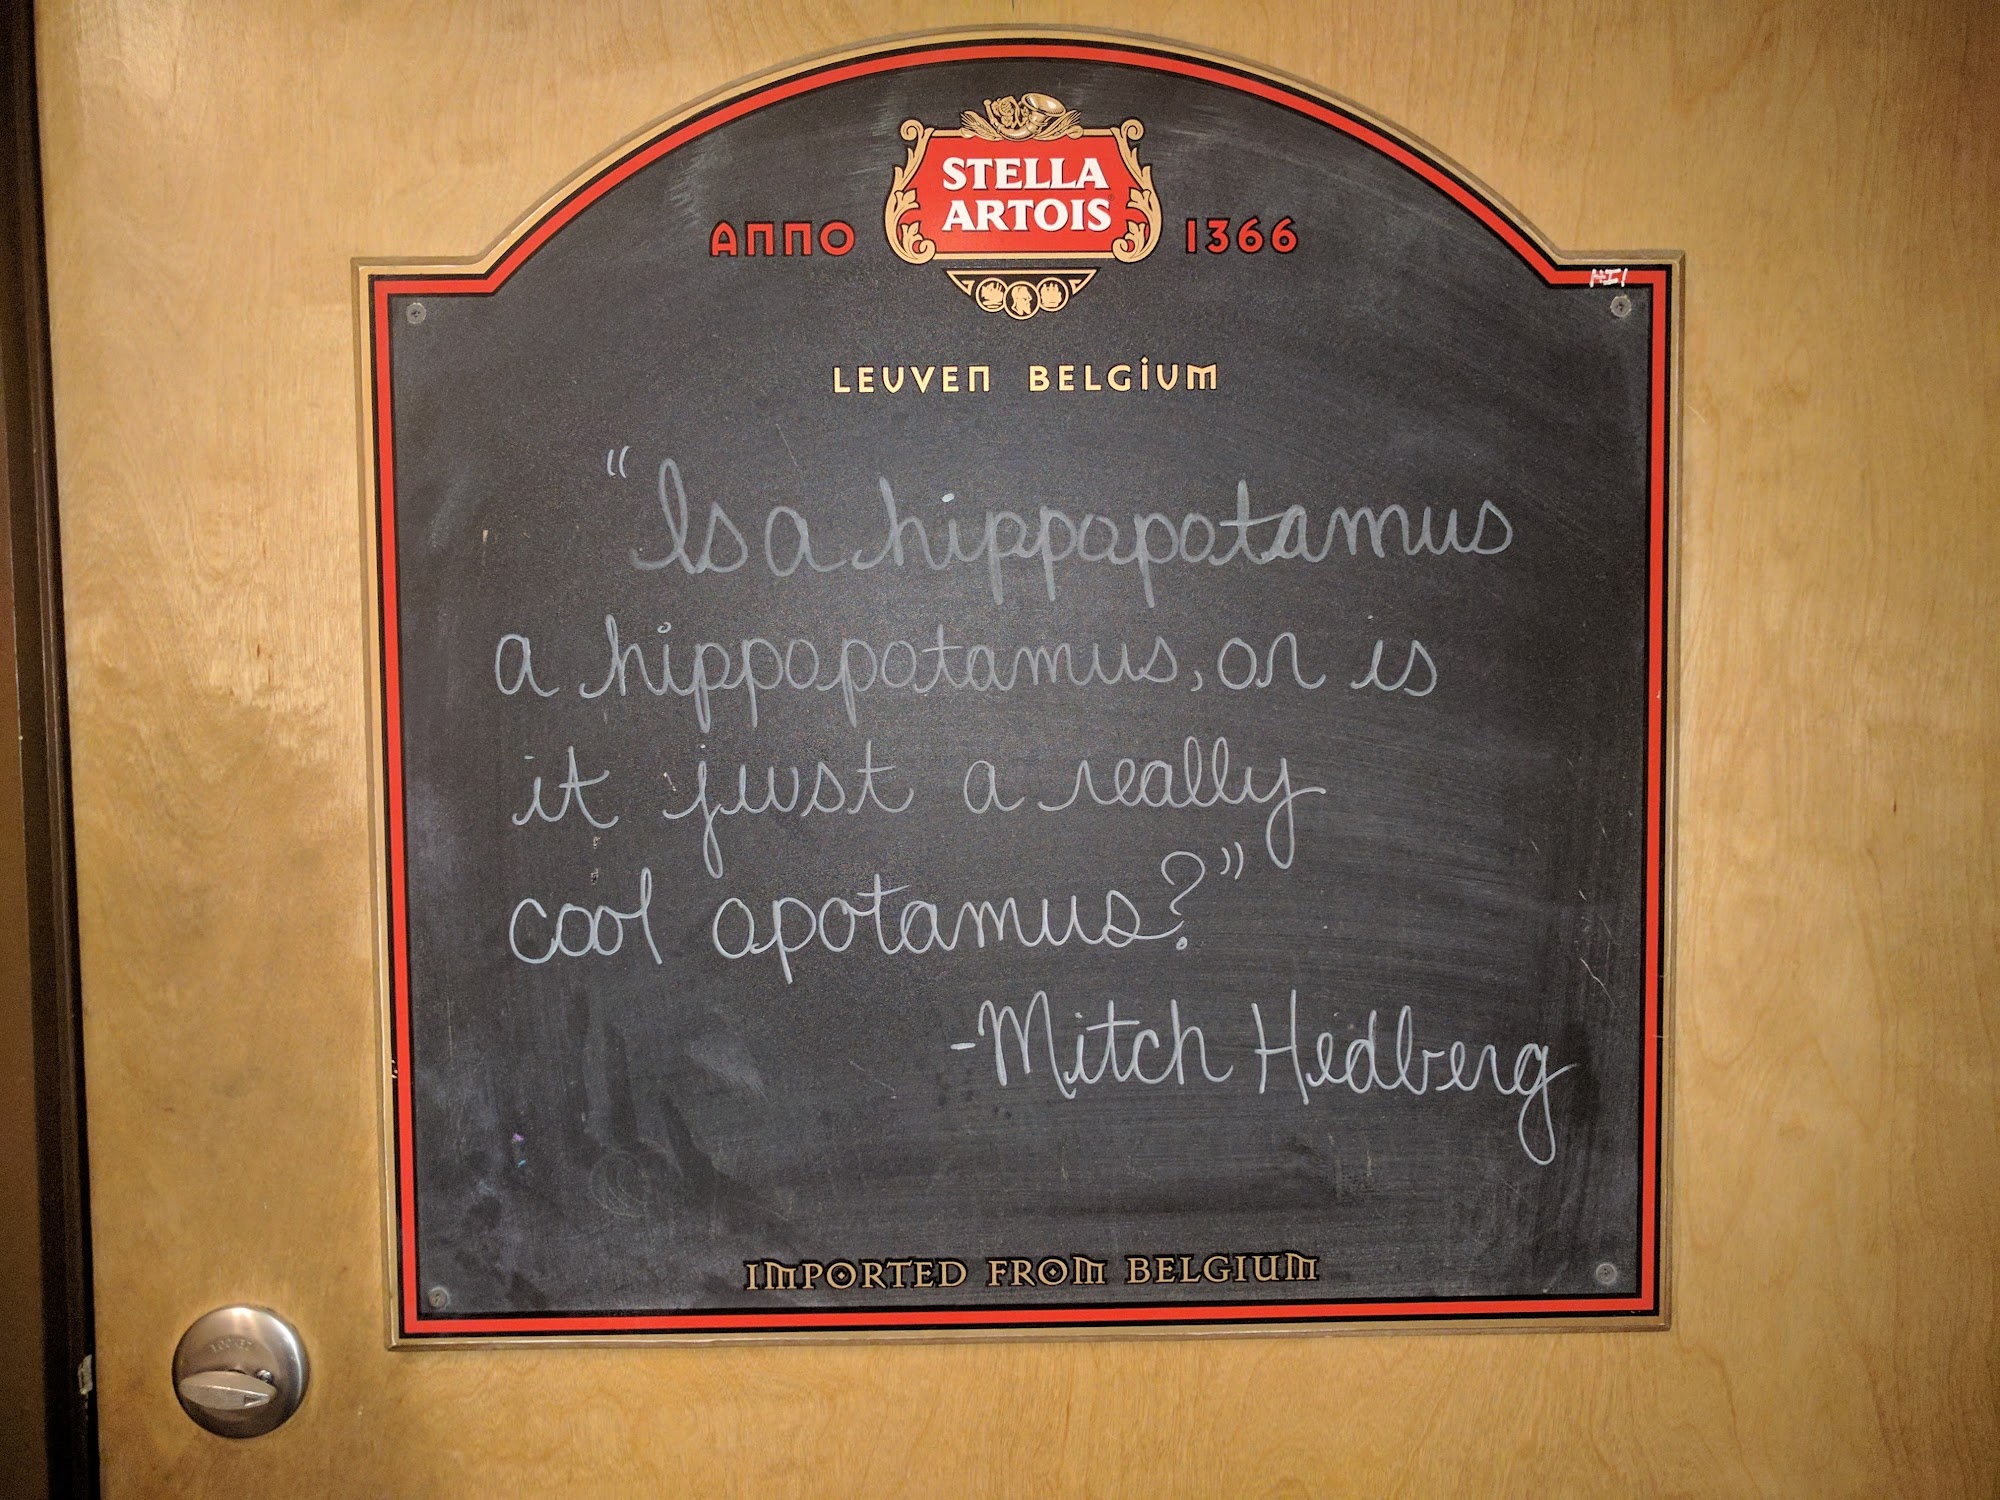 STELLA
ARTOIS
ANNO 1366
LEUVEN BELGIUM
HI!
"Is a hippopotamus
a hippopotamus, or is
it just a really
cool opotamus?"
-Mitch Hedberg
IMPORTED FROM BELGIUM